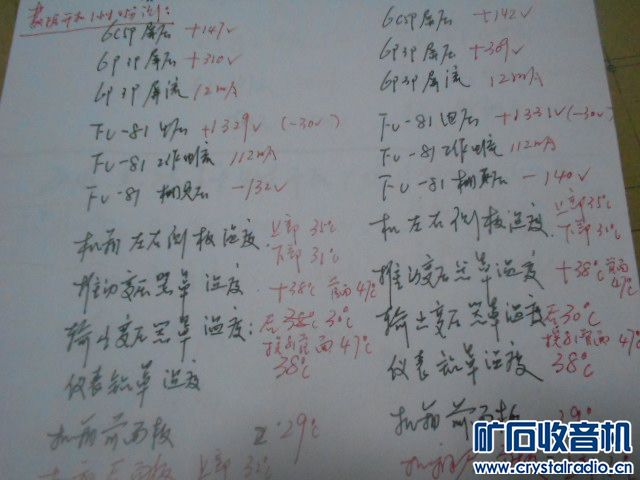 6C5P屏压 +147V
6P3P屏压 +310V
6P3P屏流 12mA
FU-81屏压 +1329V (-30V)
FU-81工作电流 112mA
FU-81栅负压 -132V
机箱左右侧板温度: 上部 35℃
下部 31℃
推动变压器罩温度 +38℃ 背面47℃
输出变压器罩温度: 右 30℃
背面47℃
仪表铝罩温度 38℃
机箱前面板 29℃
上部
6C5P屏压 +142V
6P3P屏压 +309V
6P3P屏流 12mA
FU-81屏压 +1331V (-30V)
FU-81工作电流 112mA
FU-81栅负压 -140V
机左右侧板温度 上部35℃
下部31℃
推动变压器罩温度 +38℃ 背面47℃
输出变压器罩温度 右30℃
背面47℃
仪表铝罩温度 38℃
机箱前面板 29℃
矿石收音机
www.crystalradio.cn